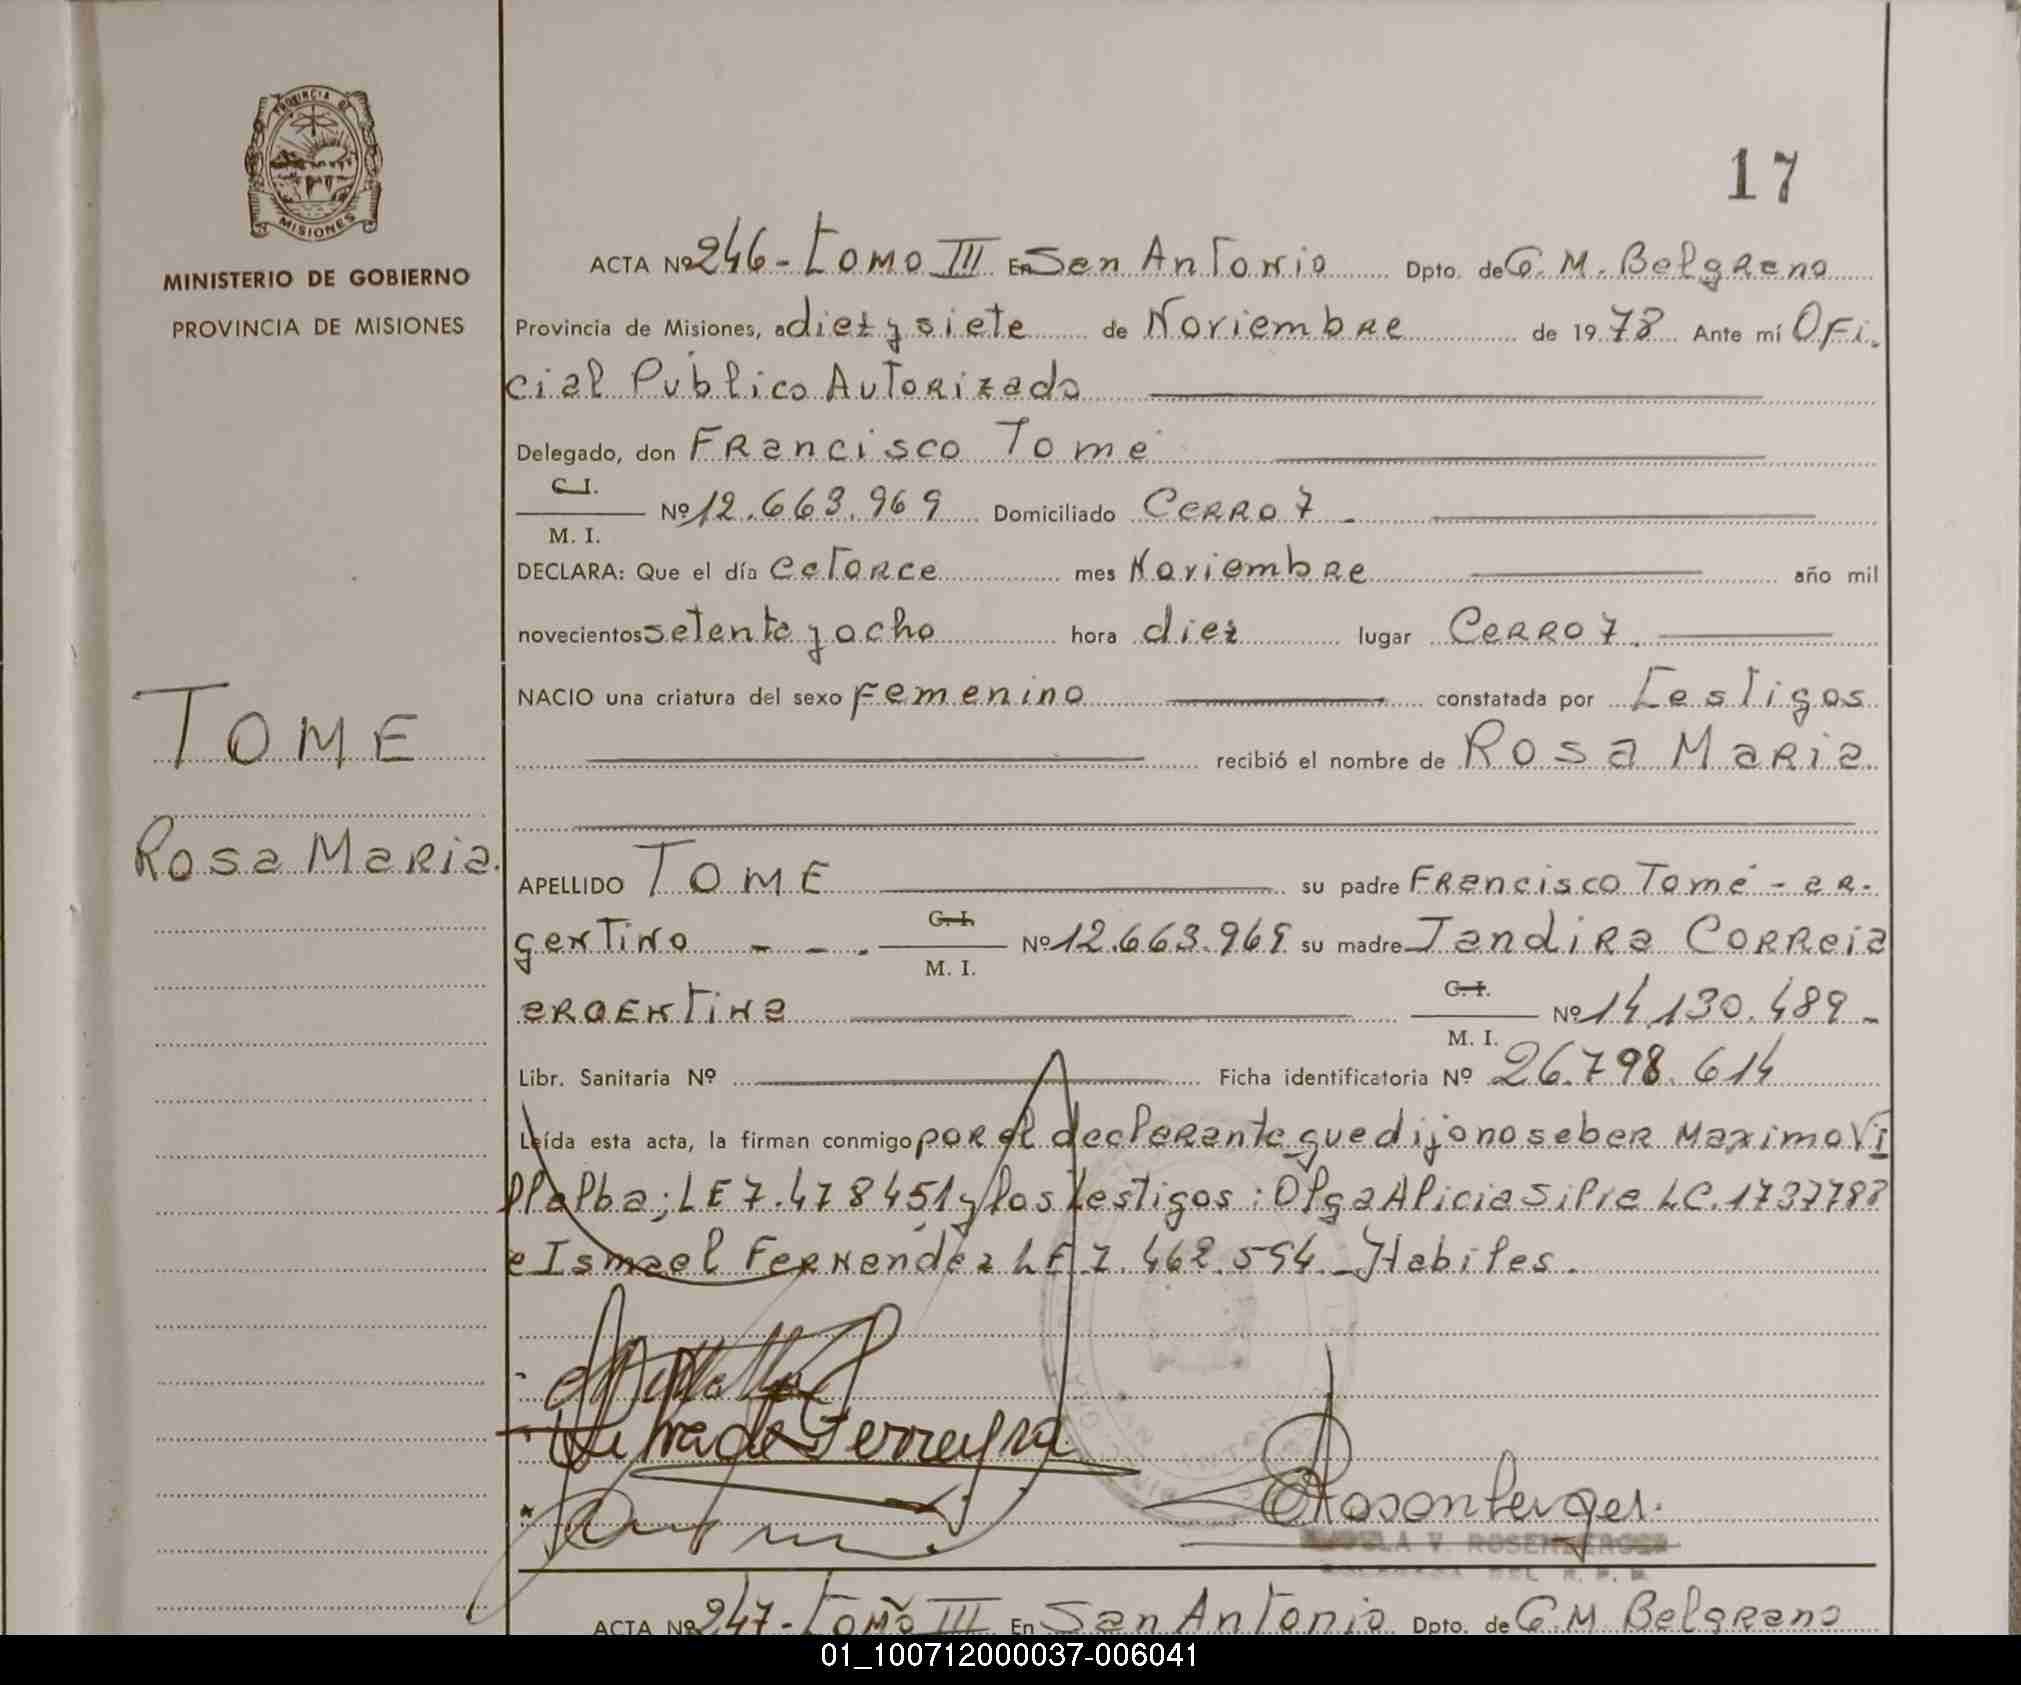 PROVINCIA DE
MISIONES
MINISTERIO DE GOBIERNO
PROVINCIA DE MISIONES
17
ACTA Nº 246 - Tomo III En San Antonio Dpto. de G. M. Belgrano
Provincia de Misiones, a diez y siete de Noviembre de 1978 Ante mí Ofi-
cial Público Autorizado
Delegado, don Francisco Tomé
C. I.
M. I.
Nº 12.663.969 Domiciliado Cerro 7.
DECLARA: Que el día catorce mes Noviembre año mil
novecientos setenta y ocho hora diez lugar Cerro 7.
NACIO una criatura del sexo Femenino constatada por Testigos
recibió el nombre de Rosa Maria.
TOME
Rosa Maria.
APELLIDO TOME su padre Francisco Tomé - ar-
gentino - - . C. I.
M. I.
Nº 12.663.969 su madre Jandira Correia
argentina C. I.
M. I.
Nº 14.130.489 -
Libr. Sanitaria Nº Ficha identificatoria Nº 26.798.614
Leída esta acta, la firman conmigo por el declarante que dijo no saber Maximo Vi
llalba; LE 7.478451 y los testigos: Olga Alicia Silva LC. 1737787
e Ismael Fernandez LE 7.462.554 - Habiles.
de Ferreyra
Rosenberger.
V. ROSENBERGER
ACTA Nº 247 - Tomo III En San Antonio Dpto. de G. M. Belgrano
01_100712000037-006041